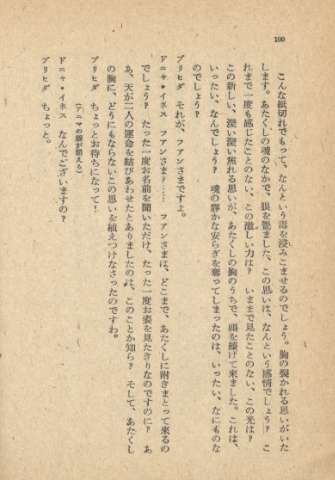 100
こんな紙切れでもって、なんという毒を浸みこませるのでしょう。胸の裂かれる思いがいた
します。あたくしの魂のなかで、眼を覚ました、この思いは、なんという感情でしょう？　こ
れまで一度も感じたことのない、この激しい力は？　いままで見たことのない、この光は？
この新しい、深い深い焦れる思いが、あたくしの胸のうちで、頭を擡げて来ました。これは、
いったい、なんでしょう？　魂の静かな安らぎを奪ってしまったのは、いったい、なにものな
のでしょう？
ブリヒダ　それが、フアンさまですよ。
ドニャ・イネス　フアンさま？……　フアンさまは、どこまで、あたくしに附きまとって来るの
でしょう？　たった一度お名前を聞いただけ、たった一度お姿を見たきりなのですのに？　あ
あ、天が二人の運命を結びあわせたとありましたのは、このことか知ら？　そして、あたくし
の胸に、どうにもならないこの思いを植えつけなさったのですわ。
ブリヒダ　ちょっとお待ちになって！
ドニャ・イネス　なんでございますの？
ブリヒダ　ちょっと。